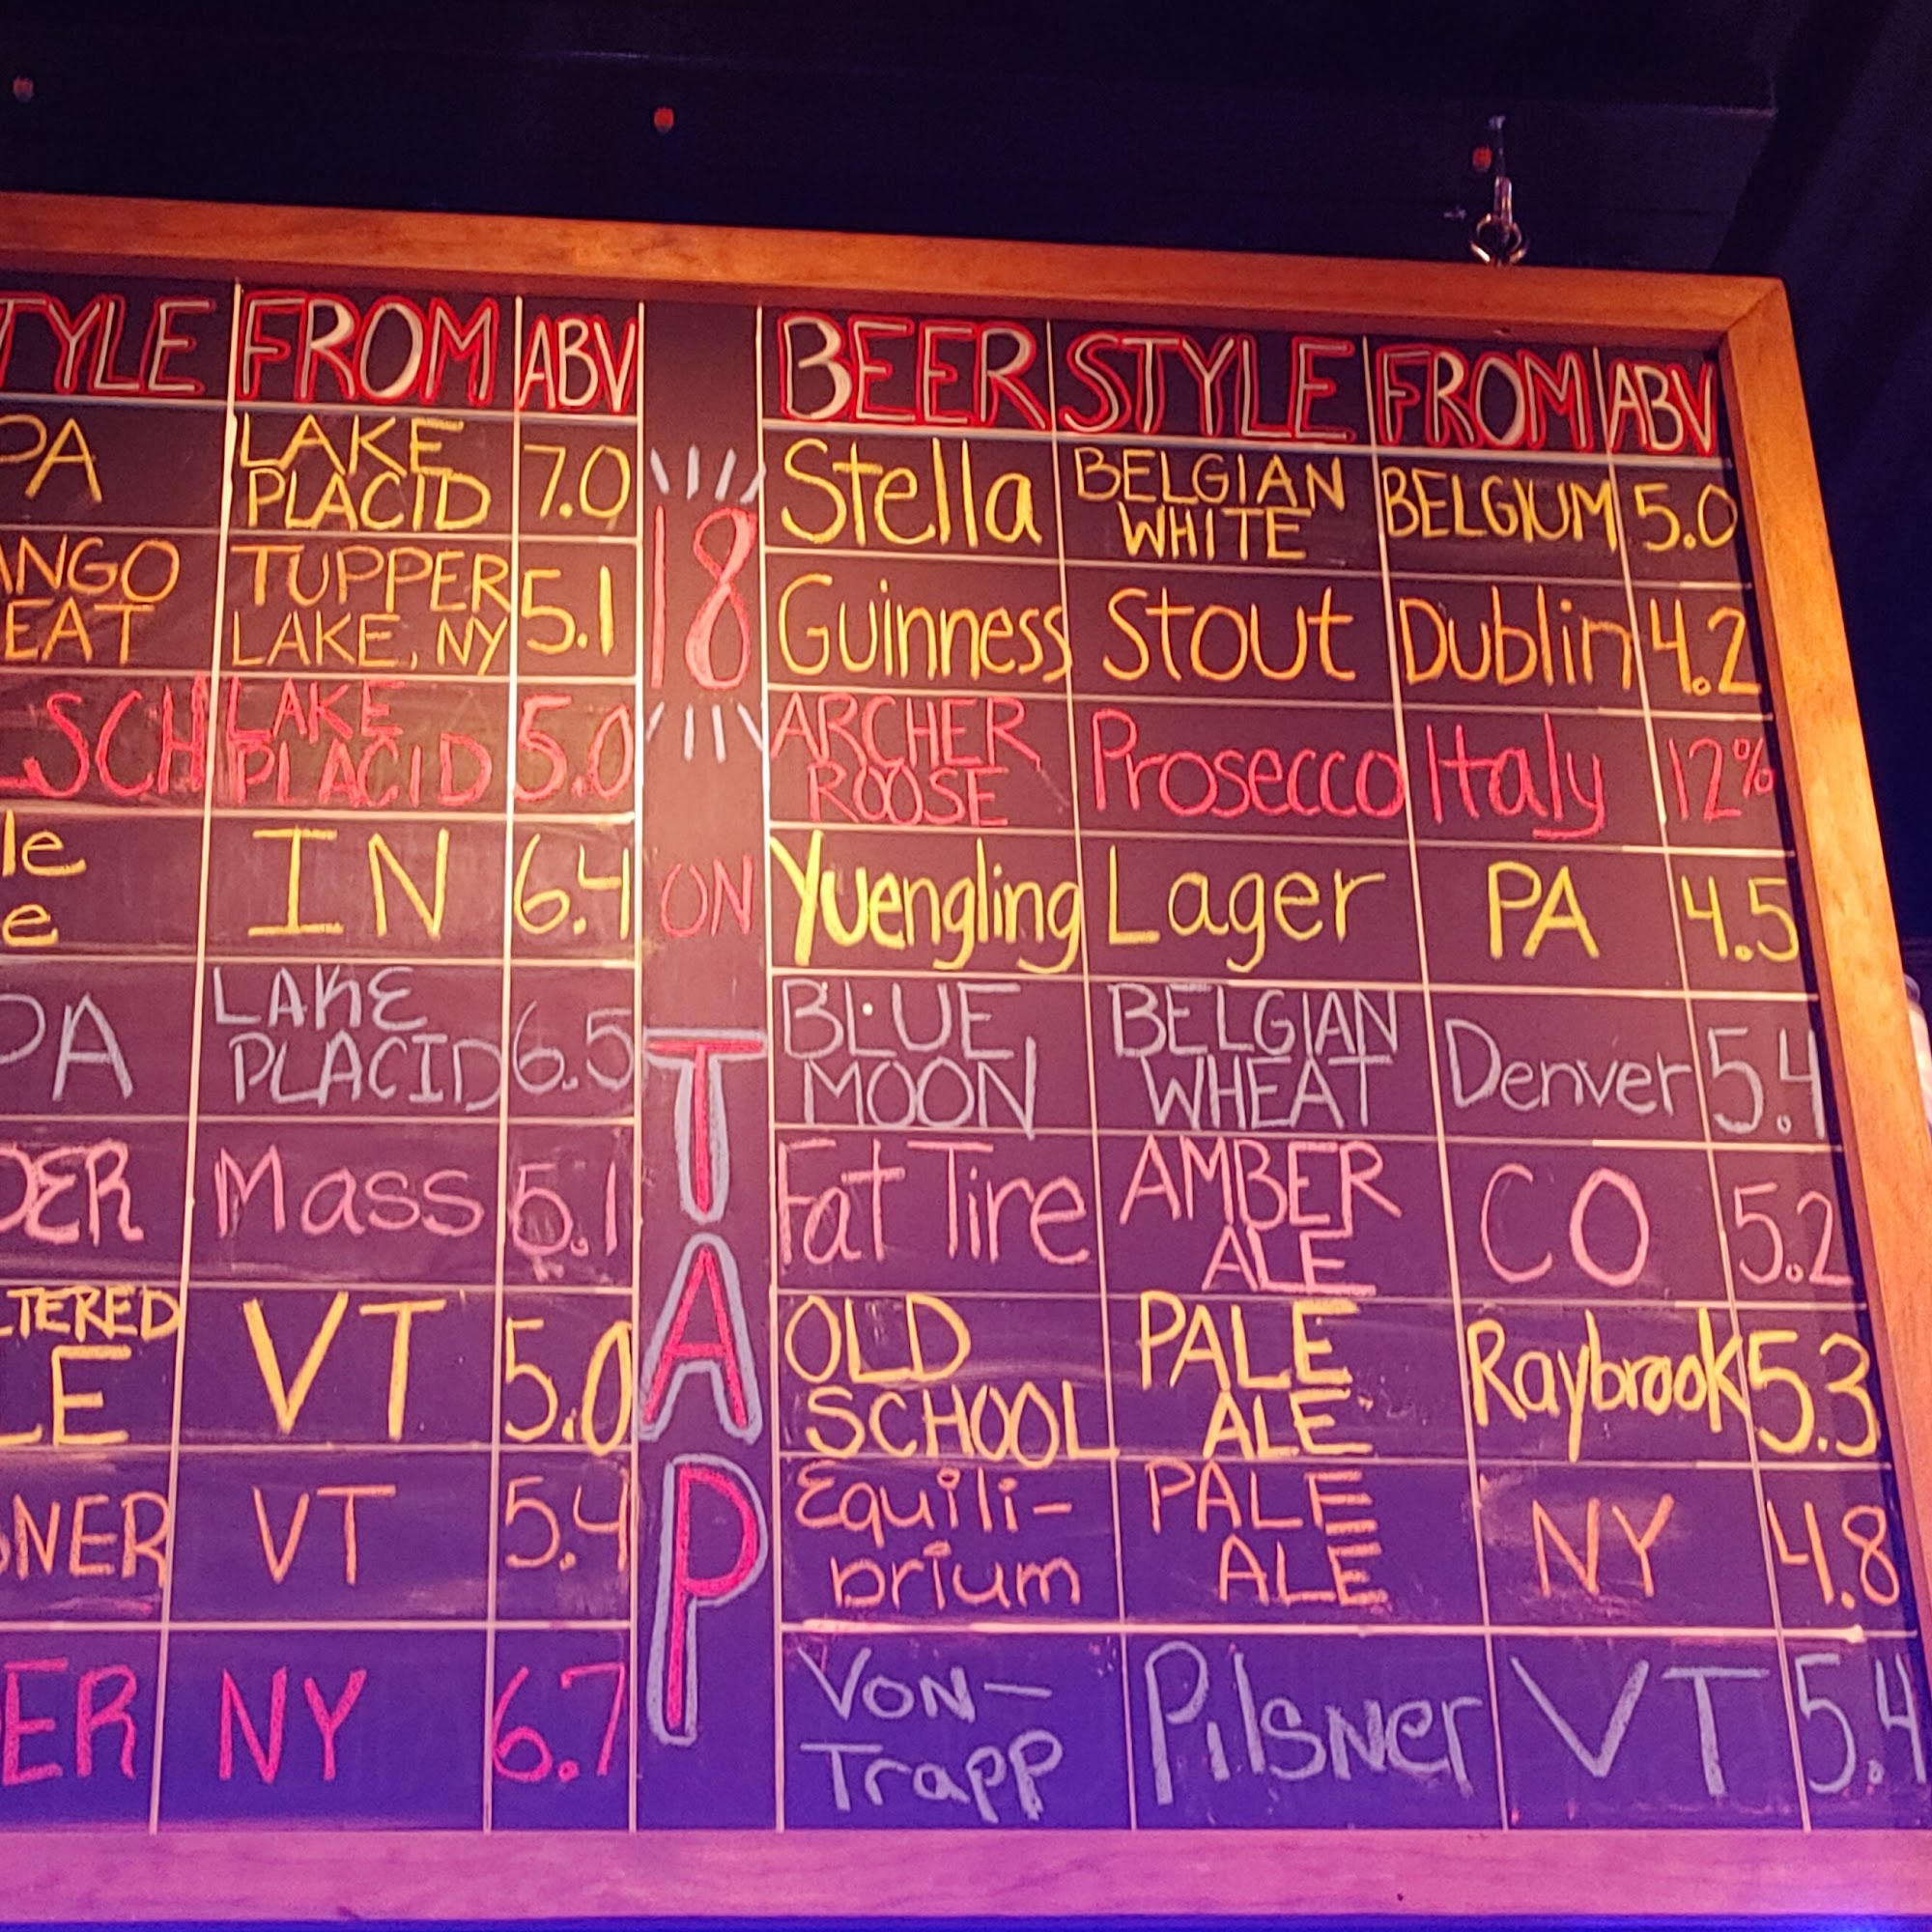 TYLE FROM ABV
PA LAKE PLACID 7.0
ANGO EAT TUPPER LAKE, NY 5.1
LSCH LAKE PLACID 5.0
le e IN 6.4
PA LAKE PLACID 6.5
DER Mass 5.1
LTERED LE VT 5.0
NER VT 5.4
ER NY 6.7
18
ON
TAP
BEER STYLE FROM ABV
Stella BELGIAN WHITE BELGIUM 5.0
Guinness Stout Dublin 4.2
ARCHER ROOSE Prosecco Italy 12%
Yuengling Lager PA 4.5
BLUE MOON BELGIAN WHEAT Denver 5.4
Fat Tire AMBER ALE CO 5.2
OLD SCHOOL PALE ALE Raybrook 5.3
Equili-brium PALE ALE NY 4.8
VON-Trapp Pilsner VT 5.4